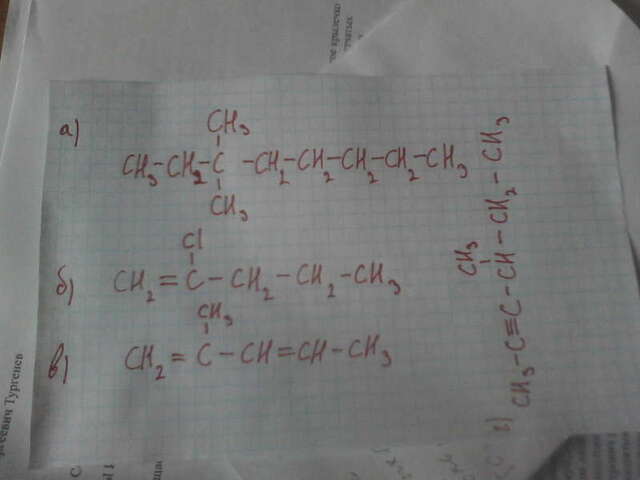 а)
CH₃
CH₃-CH₂-C-CH₂-CH₂-CH₂-CH₂-CH₃
CH₃
б)
Cl
CH₂=C-CH₂-CH₂-CH₃
в)
CH₃
CH₂=C-CH=CH-CH₃
г)
CH₃
CH₃-C≡C-CH-CH₂-CH₃
геевич Тургенев